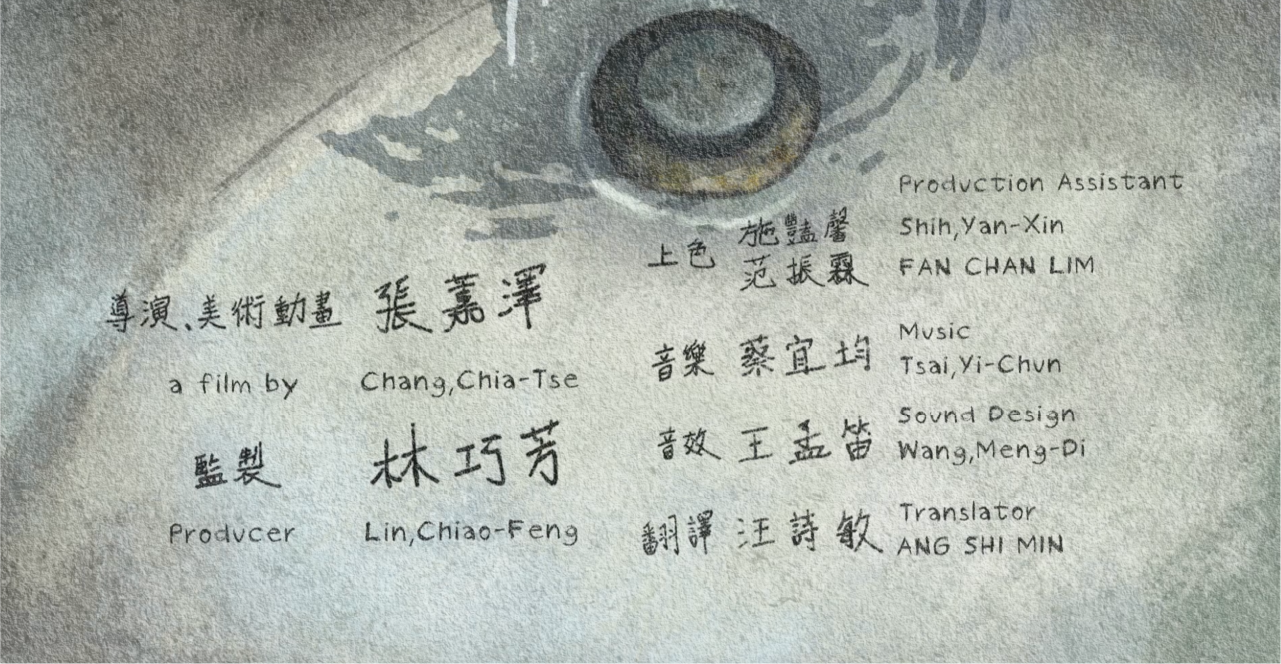 導演、美術動畫 張嘉澤
a film by Chang,Chia-Tse
監製 林巧芳
Producer Lin,Chiao-Feng
上色 施豔馨
范振霖
Production Assistant
Shih,Yan-Xin
FAN CHAN LIM
音樂 蔡宜均
Music
Tsai,Yi-Chun
音效 王孟笛
Sound Design
Wang,Meng-Di
翻譯 汪詩敏
Translator
ANG SHI MIN